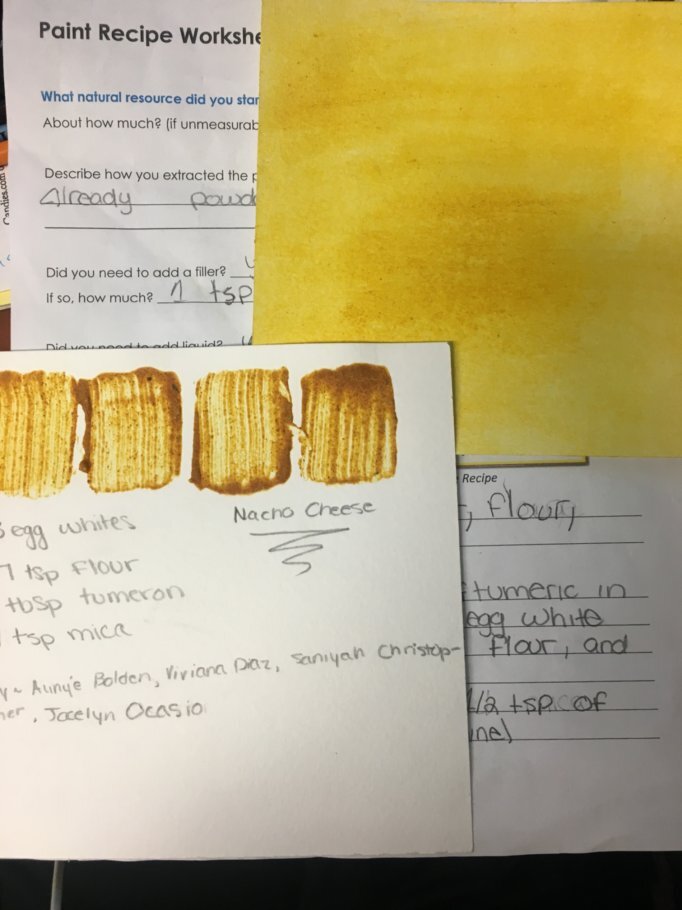 Paint Recipe Workshe
What natural resource did you star
About how much? (if unmeasurab
Describe how you extracted the p
Already powd
Did you need to add a filler?
If so, how much? 1 tsp
Did you need to add liquid?
Candies.com
Nacho Cheese
egg whites
1 tsp flour
tbsp tumeron
tsp mica
y~ Auny'e Bolden, Viviana Diaz, Saniyah Christop-
her, Jocelyn Ocasio
Recipe
, flour,
tumeric in
egg white
flour, and
1/2 tsp of
ine)